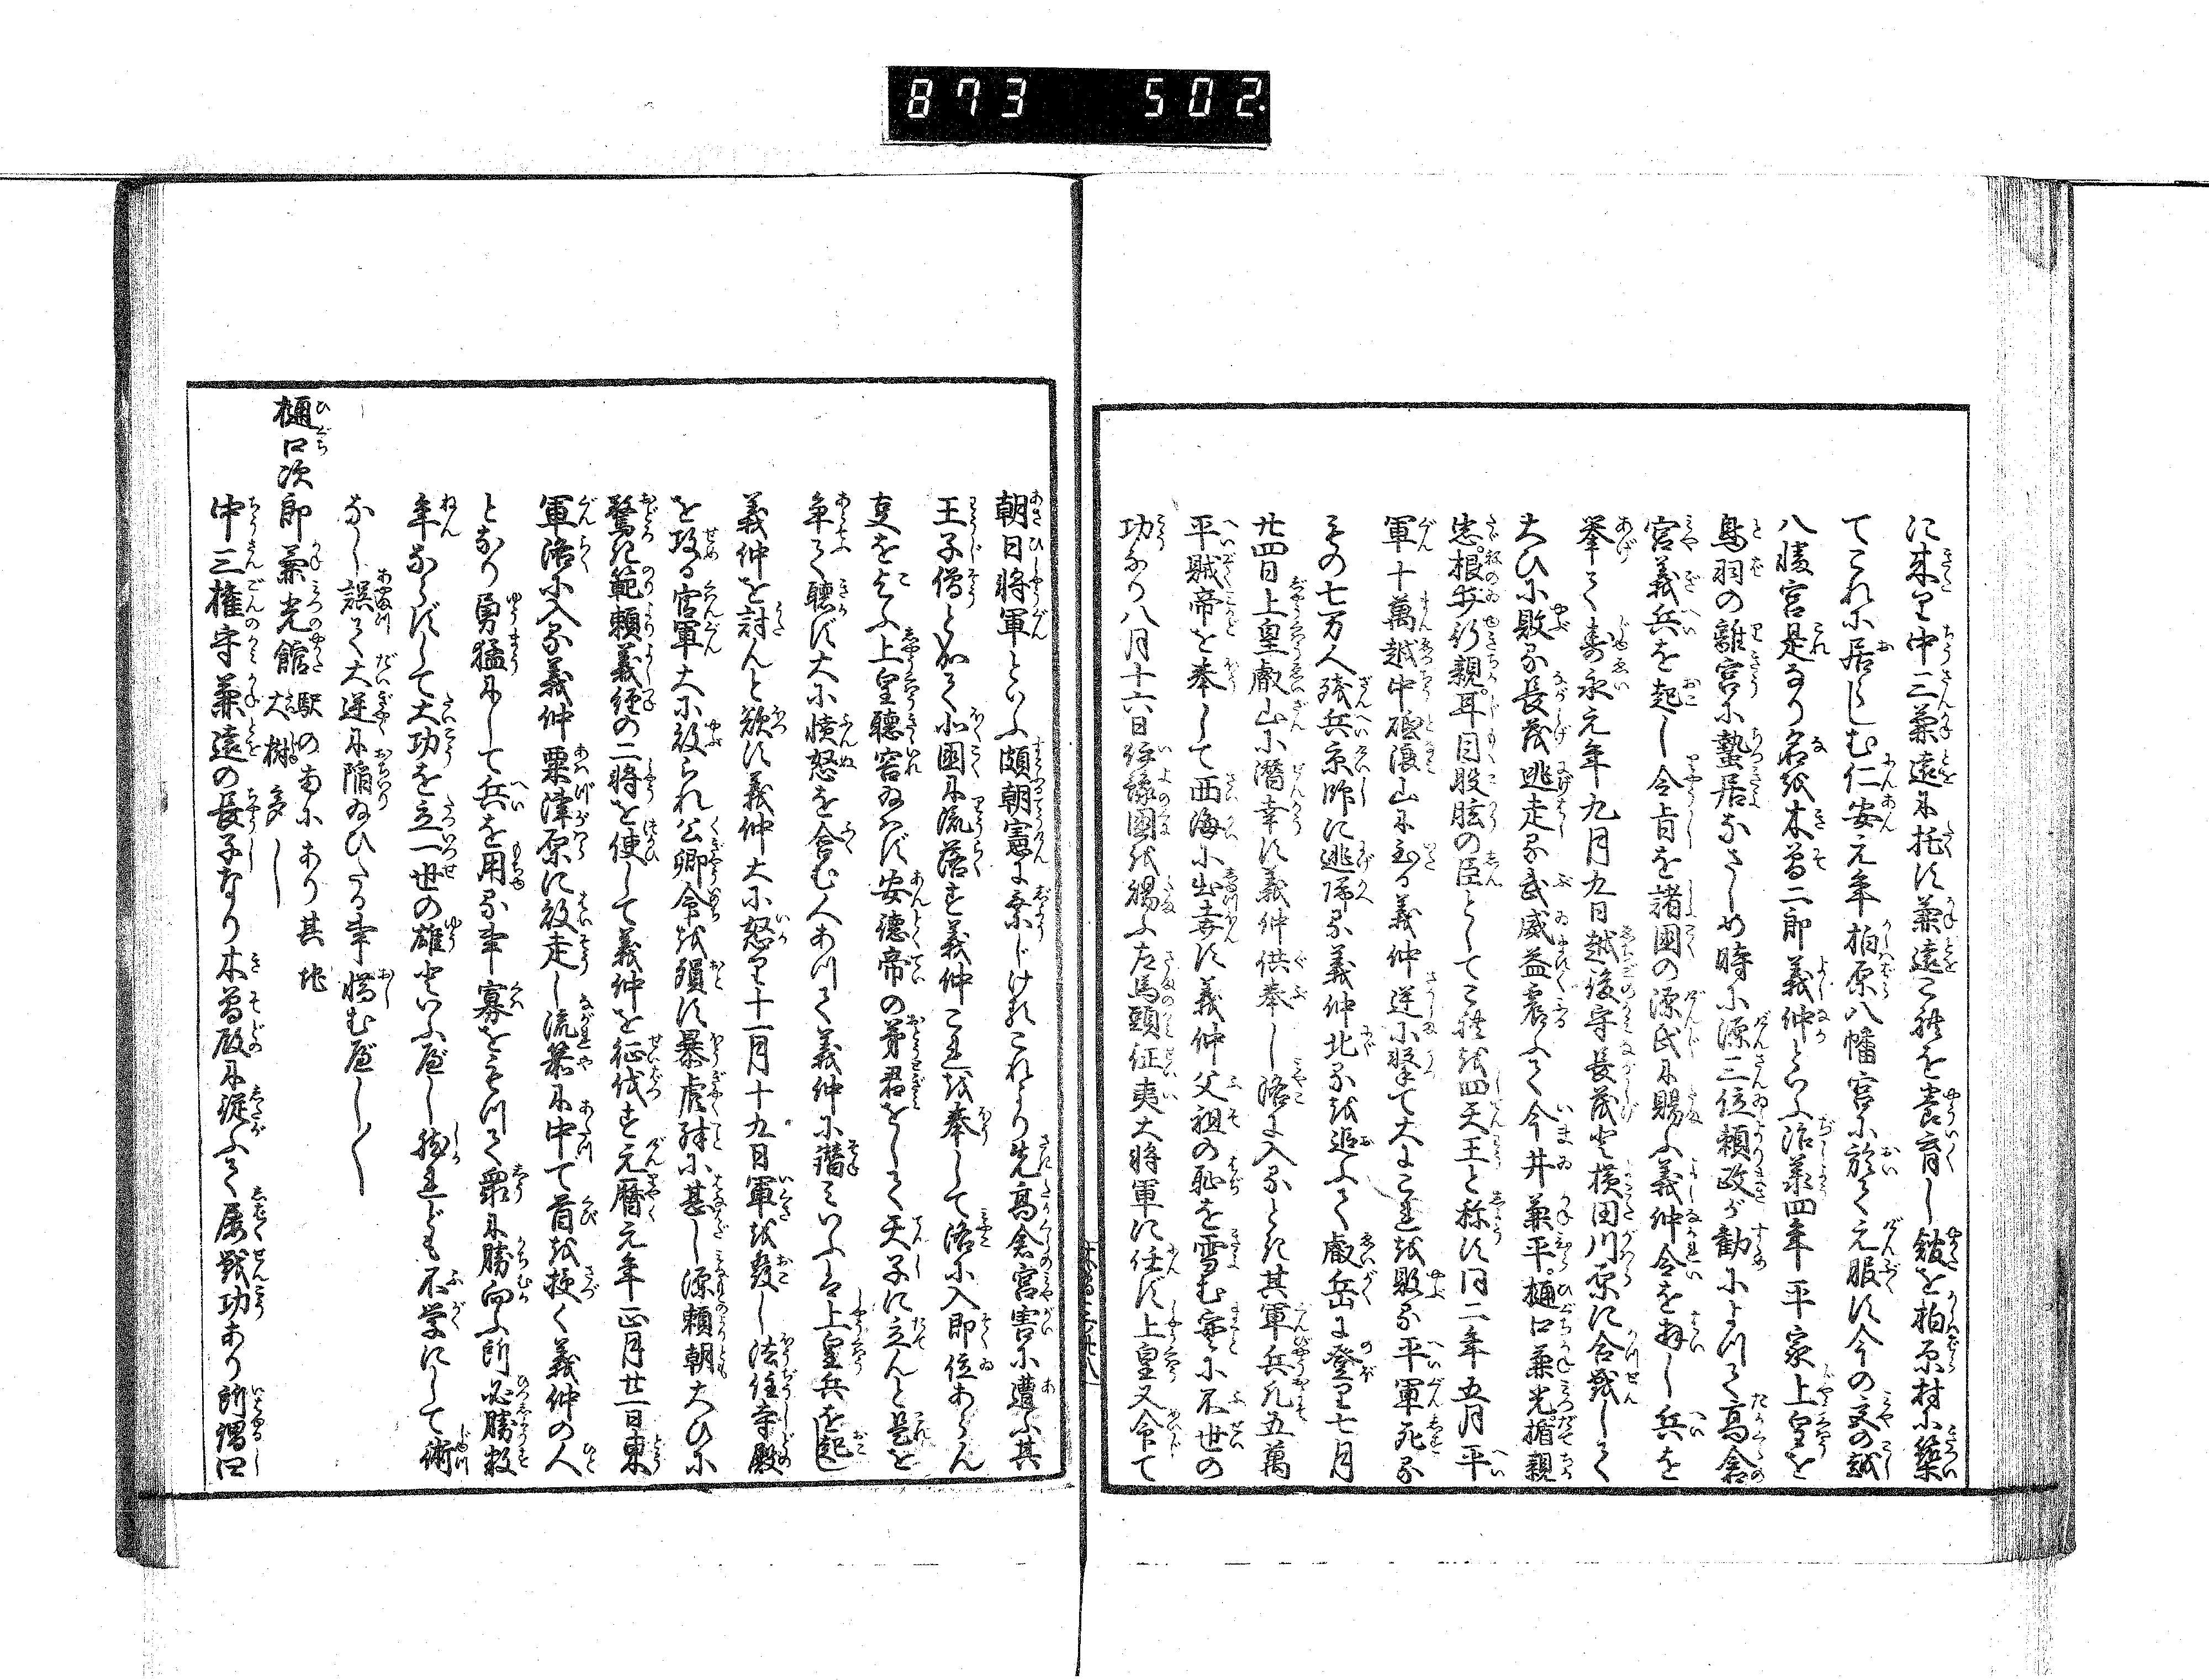 873 502
に来り中三兼遠に托す兼遠これを養育し館を柏原村に築
てこれに居らしむ仁安元年柏原八幡宮に於て元服す今の宮の越
八幡宮是なり名を木曽二郎義仲といふ治承四年平家上皇を
鳥羽の離宮に蟄居なさしめ時に源三位頼政が勧によつて高倉
宮義兵を起し令旨を諸國の源氏に賜ふ義仲令を拝し兵を
挙て寿永元年九月九日越後守長茂と横田川原に合戦して
大ひに敗る長茂逃走る武威益震ふて今井兼平樋口兼光楯親
忠根井行親耳目股肱の臣としてこれを四天王と称す同二年五月平
軍十萬越中礪浪山に至る義仲逆に撃て大にこれを敗る平軍死る
もの七万人残兵京師に逃帰る義仲北るを追ふて叡岳に登り七月
廿四日上皇叡山に潜幸す義仲供奉し洛に入るとき其軍兵凡五萬
平賊帝を奉して西海に出奔す義仲父祖の恥を雪む寔に不世の
功なり八月十六日伊豫國を賜ふ左馬頭征夷大将軍に任ず上皇又令て
朝日将軍といふ頗朝憲に乗じけれこれより先高倉宮害に遭ふ其
王子僧となりて北國に流落す義仲これを奉して洛に入即位あらん
事をこふ上皇聴容なはず安徳帝の弟君をして天子に立んと是を
争て聴ず大に憤怒を含む人あつて義仲に潜みいふは上皇兵を起し
義仲を討んと欲す義仲大に怒り十一月十九日軍を發し法住寺殿
を攻る官軍大に敗られ公卿命を殞す暴虐殊に甚し源頼朝大ひに
驚き範頼義經の二将を使して義仲を征伐す元暦元年正月廿一日東
軍洛に入る義仲粟津原に敗走し流箭に中て首を授く義仲の人
となり勇猛にして兵を用る事寡をもつて衆に勝向ふ所必勝数
年ならずして大功を立一世の雄といふ屋し然れども不学にして術
なし誤て大逆に陥ゐひたる事惜む屋し〱
樋口次郎兼光館 駅の南にあり其地大樹多し
中三權守兼遠の長子なり木曽殿に従ふて屡戦功あり所謂四